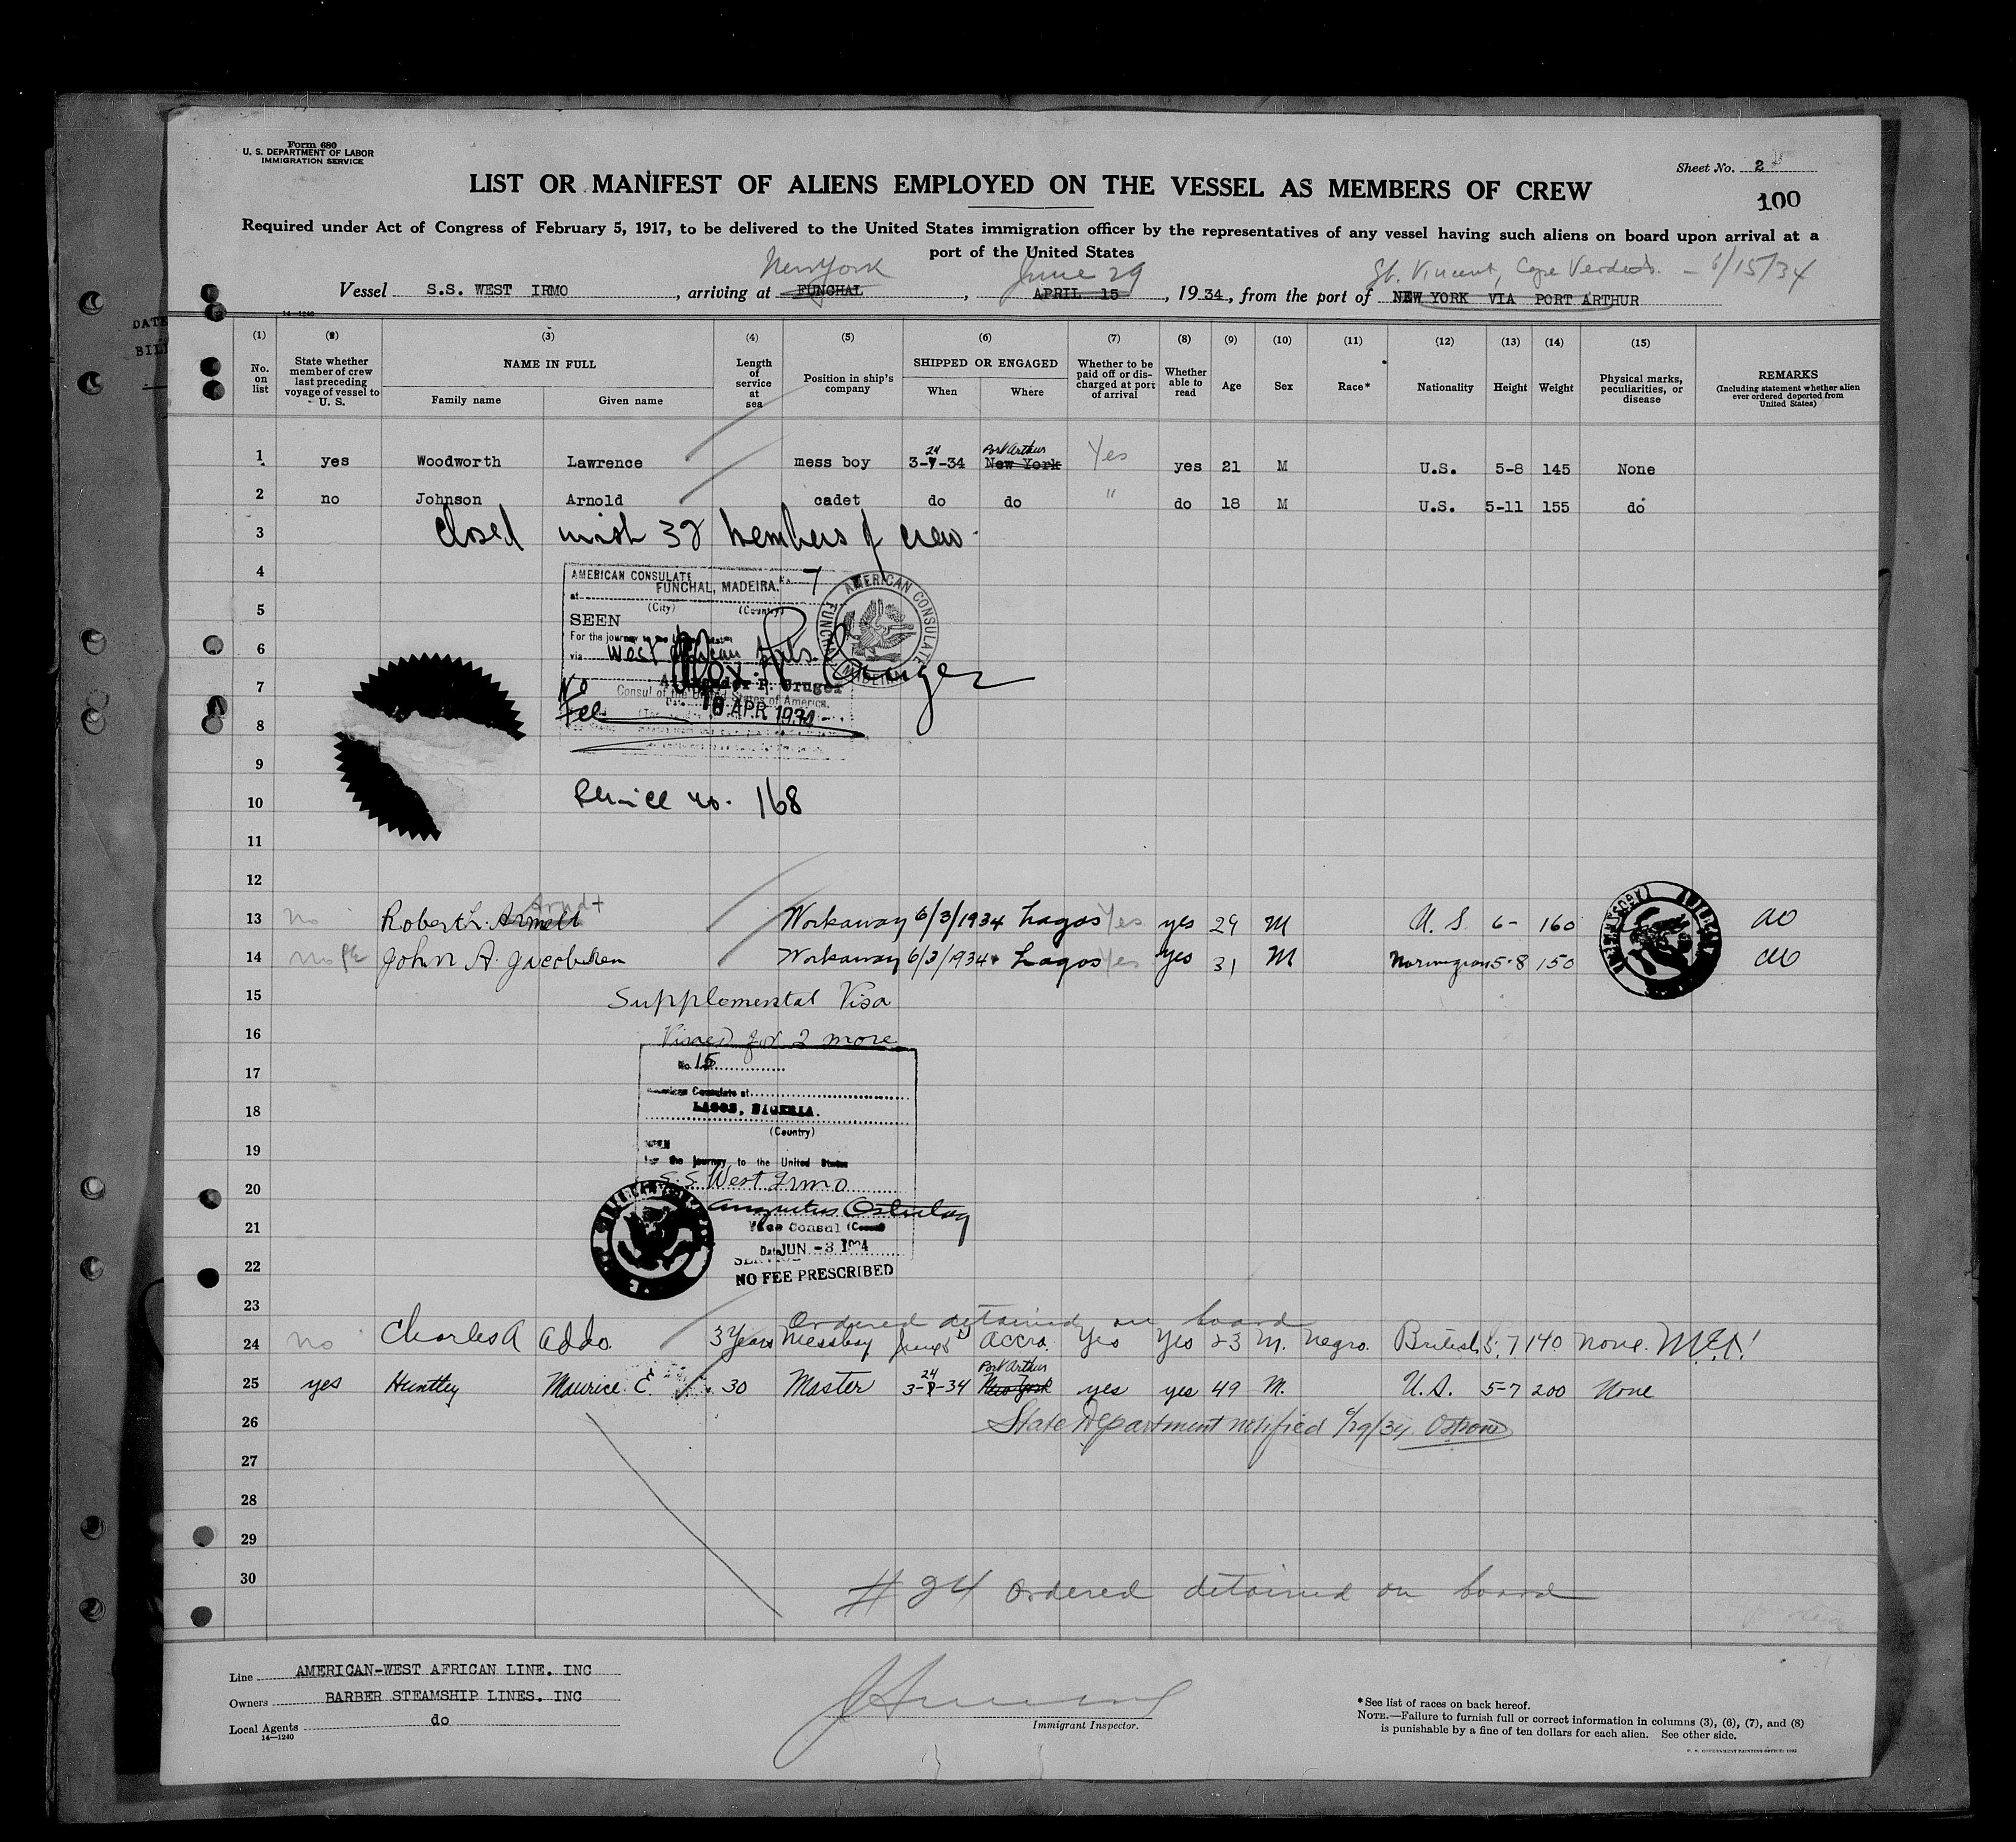 Form 680
U. S. DEPARTMENT OF LABOR
IMMIGRATION SERVICE
Sheet No. 2
LIST OR MANIFEST OF ALIENS EMPLOYED ON THE VESSEL AS MEMBERS OF CREW
100
Required under Act of Congress of February 5, 1917, to be delivered to the United States immigration officer by the representatives of any vessel having such aliens on board upon arrival at a
port of the United States
New York June 29 St. Vincent, Cape Verde Is. - 6/15/34
Vessel S.S. WEST IRMO, arriving at FUNCHAL, APRIL 15, 1934, from the port of NEW YORK VIA PORT ARTHUR
14-1240
DATE
BILL
(1) (2) (3) (4) (5) (6) (7) (8) (9) (10) (11) (12) (13) (14) (15)
No. on list
State whether member of crew last preceding voyage of vessel to U. S.
NAME IN FULL
Family name
Given name
Length of service at sea
Position in ship's company
SHIPPED OR ENGAGED
When
Where
Whether to be paid off or discharged at port of arrival
Whether able to read
Age
Sex
Race*
Nationality
Height
Weight
Physical marks, peculiarities, or disease
REMARKS
(Including statement whether alien ever ordered deported from United States)
24 Port Arthur
1 yes Woodworth Lawrence mess boy 3-7-34 New York Yes yes 21 M U.S. 5-8 145 None
2 no Johnson Arnold cadet do do " do 18 M U.S. 5-11 155 do
3 Closed with 32 members of crew.
4 AMERICAN CONSULATE No. 7
at FUNCHAL, MADEIRA.
5 (City) (Country)
SEEN
For the journey to the United States
6 via West African Pts.
AMERICAN CONSULATE FUNCHAL MADEIRA
7 No
Alexander P. Cruger
Consul of the United States of America.
8 Fee Date 16 APR 1934
9
10 Service no. 168
11
12
Arndt
13 no Robert L. Armelt Workaway 6/3/1934 Lagos Yes yes 29 M U. S 6- 160 do
14 no John A. Jacobsen Workaway 6/3/1934 Lagos Yes yes 31 M Norwegian 5-8 150 do
15 Supplemental Visa
16 Visaed for 2 more
17 No. 15
American Consulate at
18 LAGOS, NIGERIA.
(Country)
19 SEEN
for the journey to the United States
20 S.S. West Irmo
21 Vice Consul
Date JUN -3 1934
22 NO FEE PRESCRIBED
23 Ordered detained on board
24 no Charles A Addo. 3 Years Messboy Accra. Yes Yes 23 M. Negro. British 5.7 140 none.
24 Port Arthur
25 yes Huntley Maurice E. 30 Master 3-8-34 New York yes yes 49 M. U.S. 5-7 200 None
26 State Department notified 6/29/34
27
28
29
30 # 24 ordered detained on board
Line AMERICAN-WEST AFRICAN LINE. INC
Owners BARBER STEAMSHIP LINES. INC
Local Agents do
14-1240
Immigrant Inspector.
*See list of races on back hereof.
NOTE.—Failure to furnish full or correct information in columns (3), (6), (7), and (8)
is punishable by a fine of ten dollars for each alien. See other side.